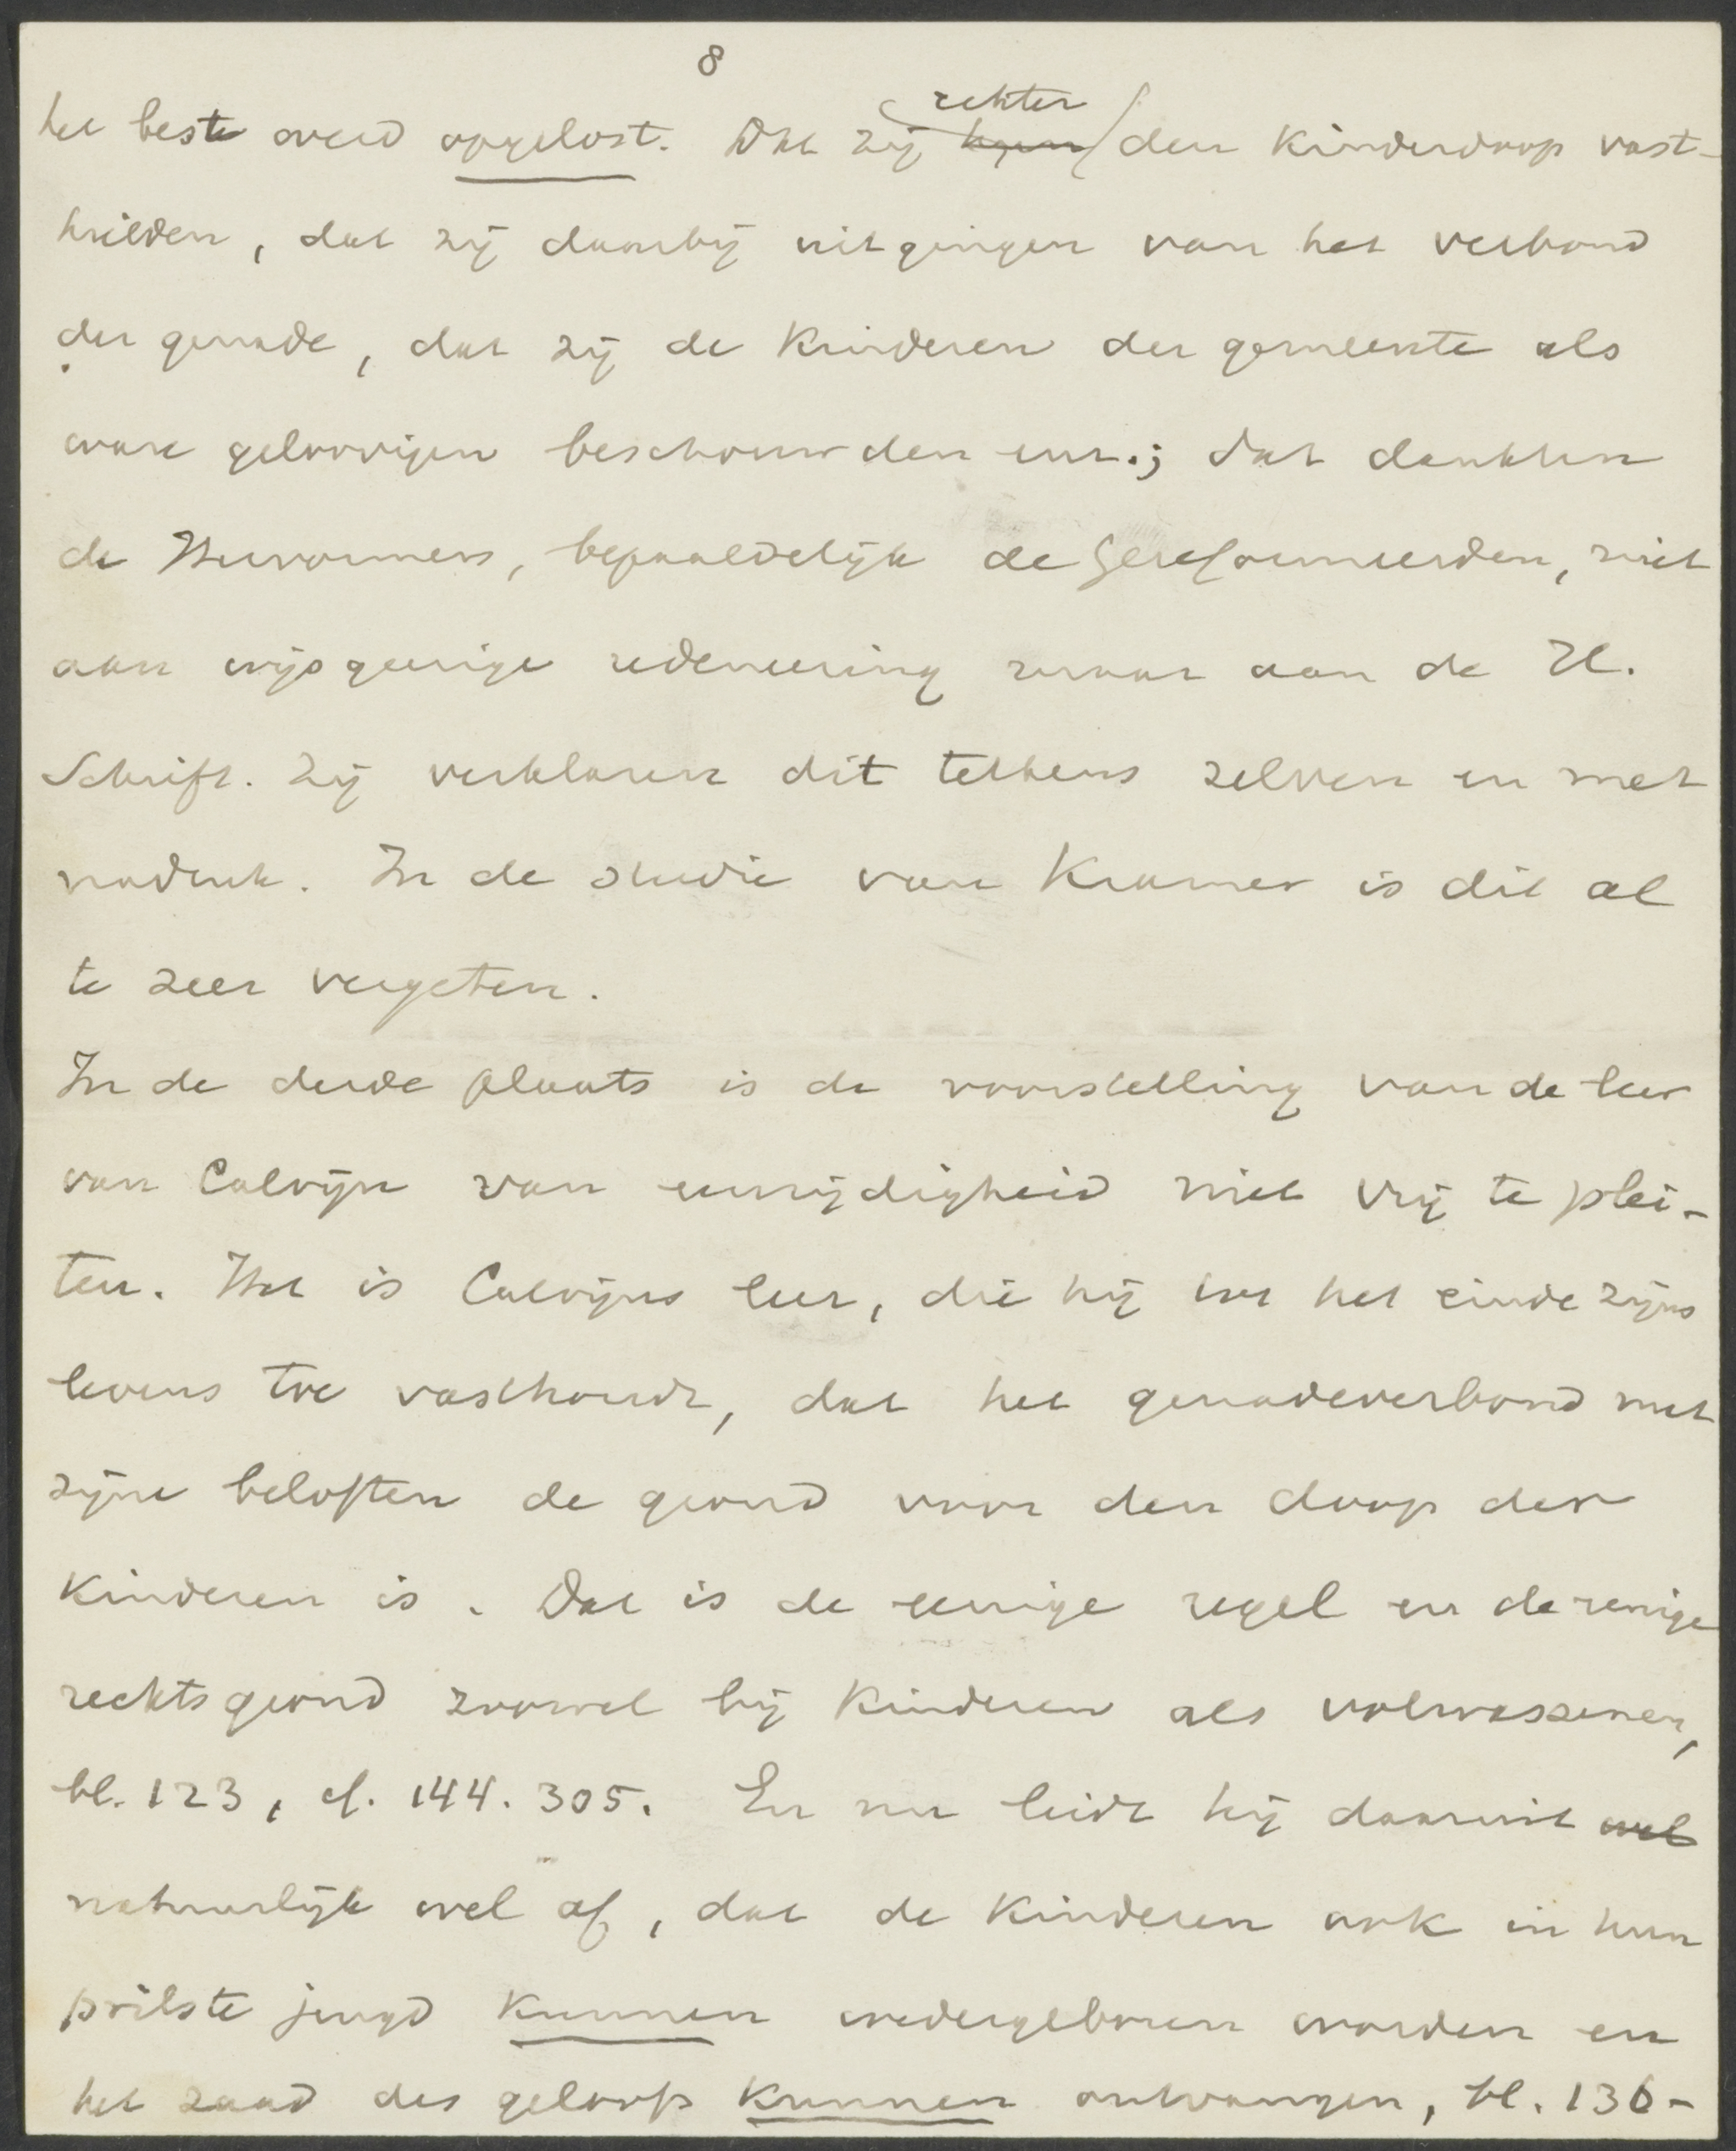 8
het beste werd opgelost. Dat zij echter den Kinderdoop vast-
hielden, dat zij daarbij uitgingen van het verbond
der genade, dat zij de Kinderen der gemeente als
ware geloovigen beschouwden enz.; dat dankten
de Hervormers, bepaaldelijk de Gereformeerden, niet
aan wijsgeerige redeneering maar aan de H.
Schrift. Zij verklaren dit telkens zelven en met
nadruk. In de studie van Kramer is dit al
te zeer vergeten.
In de derde plaats is de voorstelling van de leer
van Calvijn van eenzijdigheid niet vrij te plei-
ten. Het is Calvijns leer, die hij tot het einde zijns
levens toe vasthoudt, dat het genadeverbond met
zijne beloften de grond voor den doop der
Kinderen is. Dat is de eenige regel en de eenige
rechtsgrond zoowel bij Kinderen als volwassenen,
bl. 123, cf. 144. 305. En nu leidt hij daaruit wel
natuurlijk wel af, dat de Kinderen ook in hun
prilste jeugd Kunnen wedergeboren worden en
het zaad des geloofs Kunnen ontvangen, bl. 136-